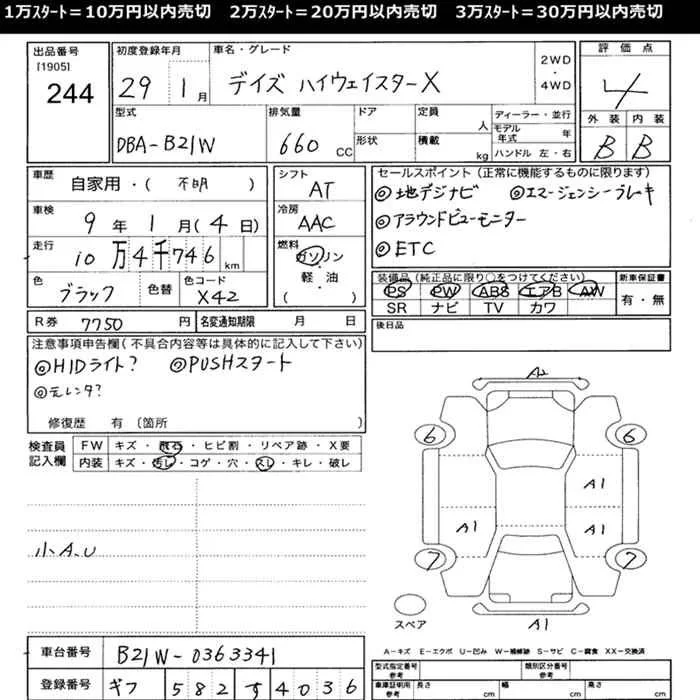 1万ｽﾀｰﾄ＝10万円以内売切　2万ｽﾀｰﾄ＝20万円以内売切　3万ｽﾀｰﾄ＝30万円以内売切
出品番号
[1905]
244
初度登録年月
29 1月
車名・グレード
デイズ ハイウェイスターX
2WD
・
4WD
評価点
4
外装 内装
B B
型式
DBA-B21W
排気量
660 CC
ドア
形状
定員 人
積載 kg
ディーラー・並行
モデル年式 年
ハンドル 左・右
車歴
自家用・( 不明 )
車検
9年1月(4日)
走行
10万4千746 km
色
ブラック
色替
色コード
X42
シフト
AT
冷房
AAC
燃料
ガソリン
・
軽・油
( )
セールスポイント(正常に機能するものに限ります)
◎地デジナビ ◎エマージェンシーブレーキ
◎アラウンドビューモニター
◎ETC
装備品(純正品に限り○をつけてください)
PS PW ABS エアB AW
SR ナビ TV カワ
新車保証書
有・無
R券 7750 円
名変通知期限 月 日
後日品
注意事項申告欄(不具合内容等は具体的に記入して下さい)
◎HIDライト? ◎PUSHスタート
◎元レンタ?
修復歴 有 〔箇所 〕
検査員
記入欄
FW キズ・飛石・ヒビ割・リペア跡・X要
内装 キズ・汚れ・コゲ・穴・スレ・キレ・破レ
小A、U
A2
6 6
A1
A1 A1
7 7
スペア
A1
A－キズ E－エクボ U－凹み W－補修跡 S－サビ C－腐食 XX－交換済
車台番号
B21W-0363341
登録番号
ギフ 582 す 4036
型式指定番号
参考
類別区分番号
参考
車庫証明用
参考
長さ cm 幅 cm 高さ cm